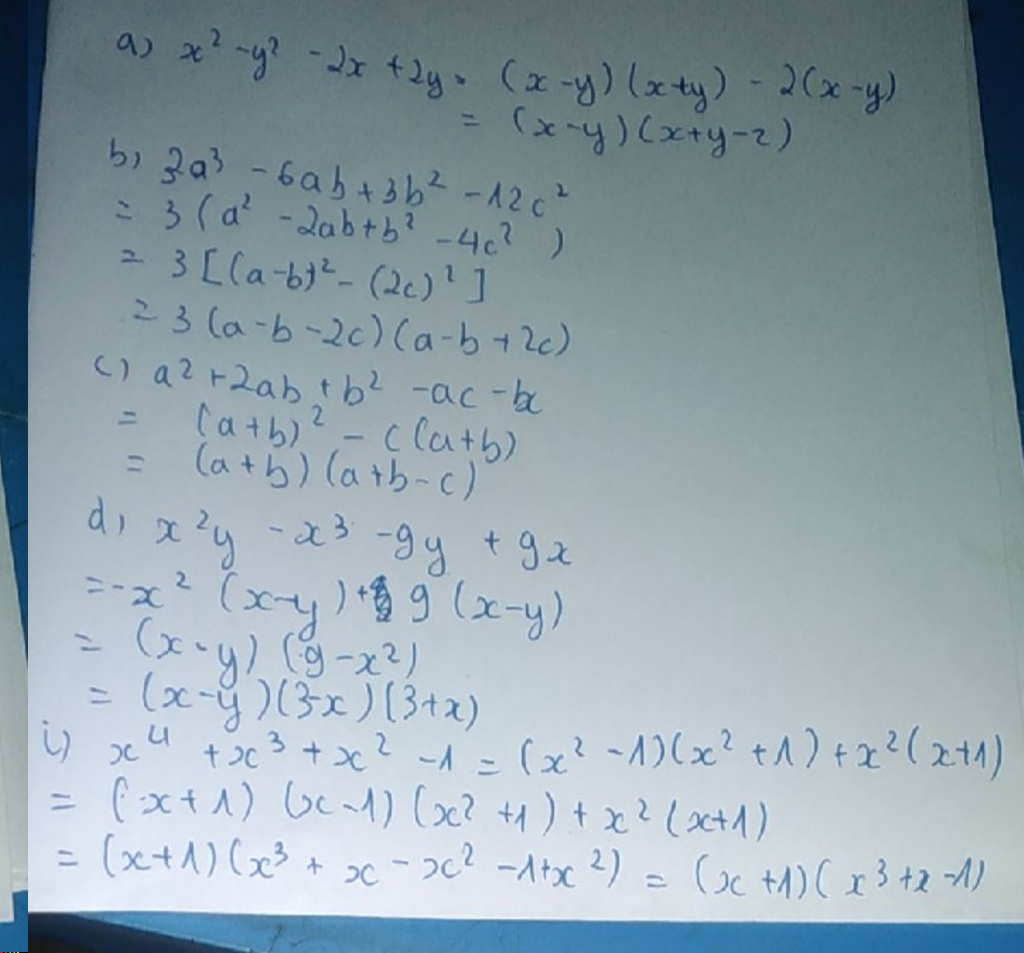 a) x² - y² - 2x + 2y = (x - y)(x + y) - 2(x - y)
= (x - y)(x + y - 2)
b) 3a³ - 6ab + 3b² - 12c²
= 3(a² - 2ab + b² - 4c²)
= 3[(a - b)² - (2c)²]
= 3(a - b - 2c)(a - b + 2c)
c) a² + 2ab + b² - ac - bc
= (a + b)² - c(a + b)
= (a + b)(a + b - c)
d) x²y - x³ - 9y + 9x
= -x²(x - y) + 9(x - y)
= (x - y)(9 - x²)
= (x - y)(3 - x)(3 + x)
i) x⁴ + x³ + x² - 1 = (x² - 1)(x² + 1) + x²(x + 1)
= (x + 1)(x - 1)(x² + 1) + x²(x + 1)
= (x + 1)(x³ + x - x² - 1 + x²) = (x + 1)(x³ + x - 1)